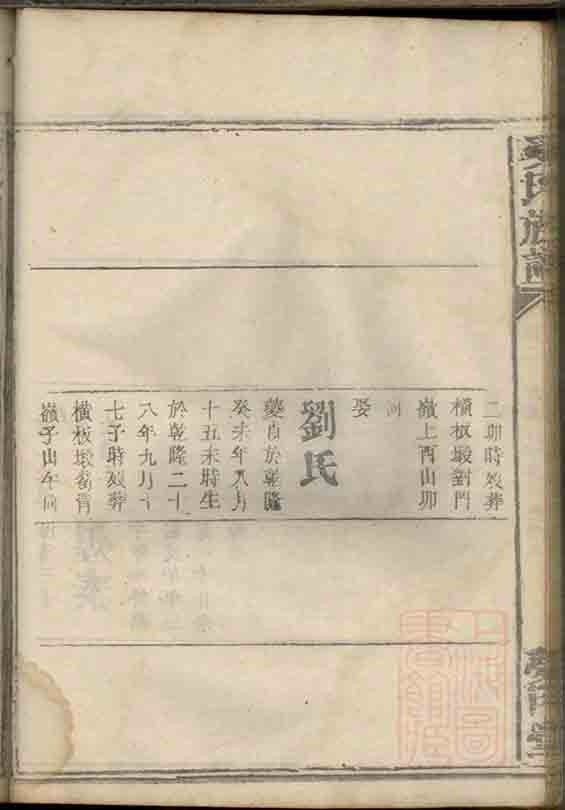 氏族譜
二卯時殁葬
橫板塅對門
嶺上酉山卯
向
娶
劉氏
於乾隆
癸未年八月
十五未時生
於乾隆二十
八年九月十
七子時殁葬
橫板塅
嶺子山午向
堂
上海圖
書館藏